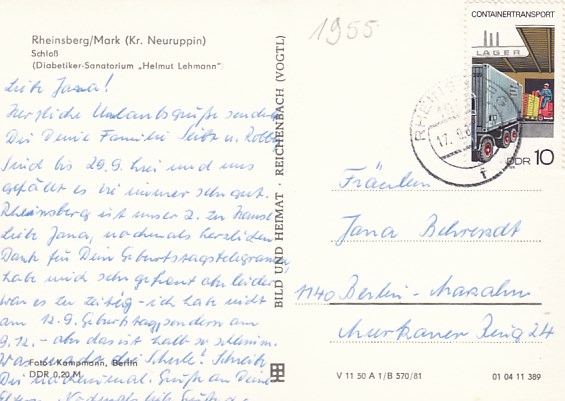 Rheinsberg/Mark (Kr. Neuruppin)
Schloß
(Diabetiker-Sanatorium „Helmut Lehmann"
Liebe Jana!
Herzliche Urlaubsgrüße senden
Dir Deine Familie Seitz u.
Sind bis 29.9. hier und uns
gefällt es hier immer sehr gut.
Rheinsberg ist unser 2. zu Hause
Liebe Jana, nochmals herzlichen
Dank für Dein Geburtstagstelegramm,
habe mich sehr gefreut aber leider
war es zu zeitig - ich habe nicht
am 12.9. Geburtstag, sondern am
9.12. - aber das ist halb so schlimm.
Was macht die Schule! Schreib
Dir noch einmal. Grüße an Deine
Eltern. Nochmals
Foto: Kempmann, Berlin
DDR 0,20 M
BILD UND HEIMAT · REICHENBACH (VOGTL)
1955
CONTAINERTRANSPORT
LAGER
DDR 10
RHEINS
17.9.8
f
Fräulein
Jana Behrendt
1140 Berlin-Marzahn
Murtzaner Ring 24
V 11 50 A 1/B 570/81
01 04 11 389